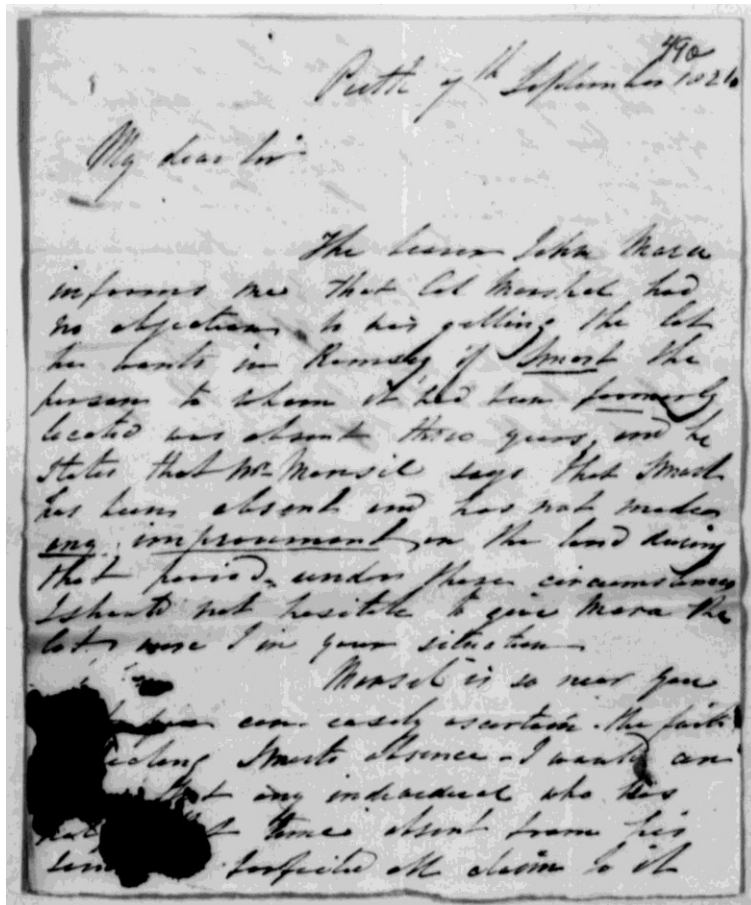 490
Perth 7th September 1826
My dear Sir
The bearer John Mara
informs me that Col Marshal had
no objections to his getting the lot
he wants in Ramsay if Smart the
person to whom it had been formerly
located was absent three years, and he
states that Mr Mansil says that Smart
has been absent and has not made
any improvement on the land during
that period, under these circumstances
I should not hesitate to give Mara the
lot were I in your situation
Mansil is so near you
you can easily ascertain the facts
Smarts absence - I
that any individual who has
time absent from his
forfeited all claim to it